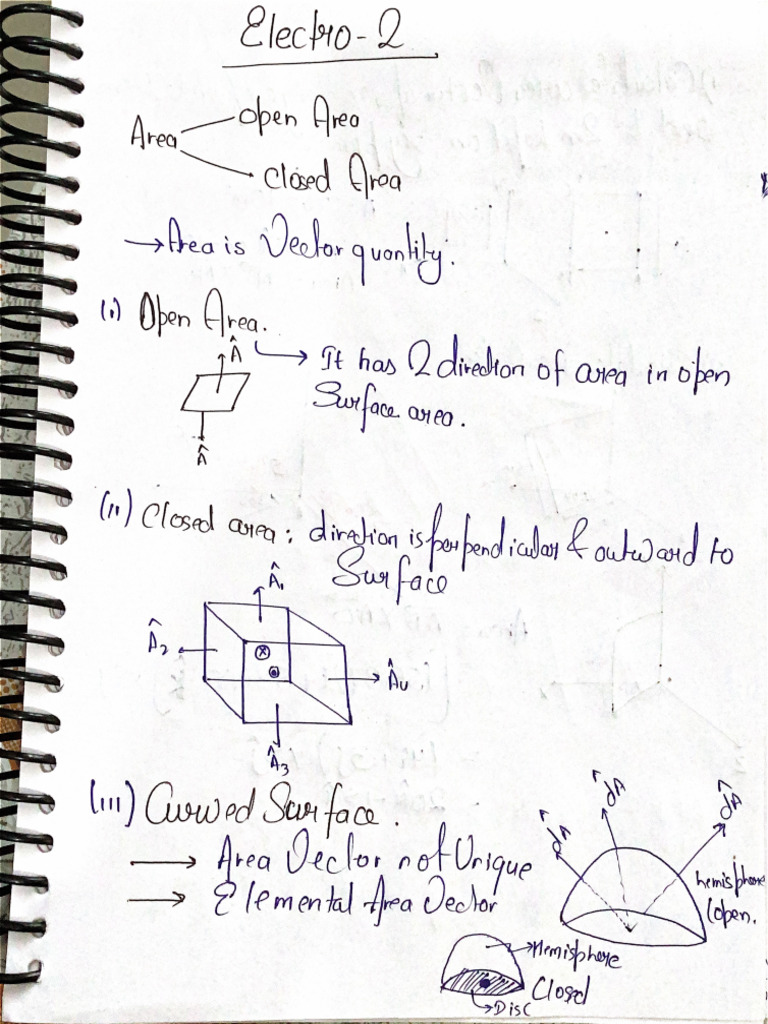 Electro-2
Area
open Area
Closed Area
→ Area is Vector quantity.
(i) Open Area.
Â
→ It has 2 direction of area in open
Surface area.
Â
(ii) Closed area: direction is perpendicular & outward to
Surface
Â₁
Â₂
Â₄
Â₃
(iii) Curved Surface.
→ Area Vector not Unique
→ Elemental Area Vector
dA
dA
dA
hemisphere
(open.
Hemisphere
Closed
Disc